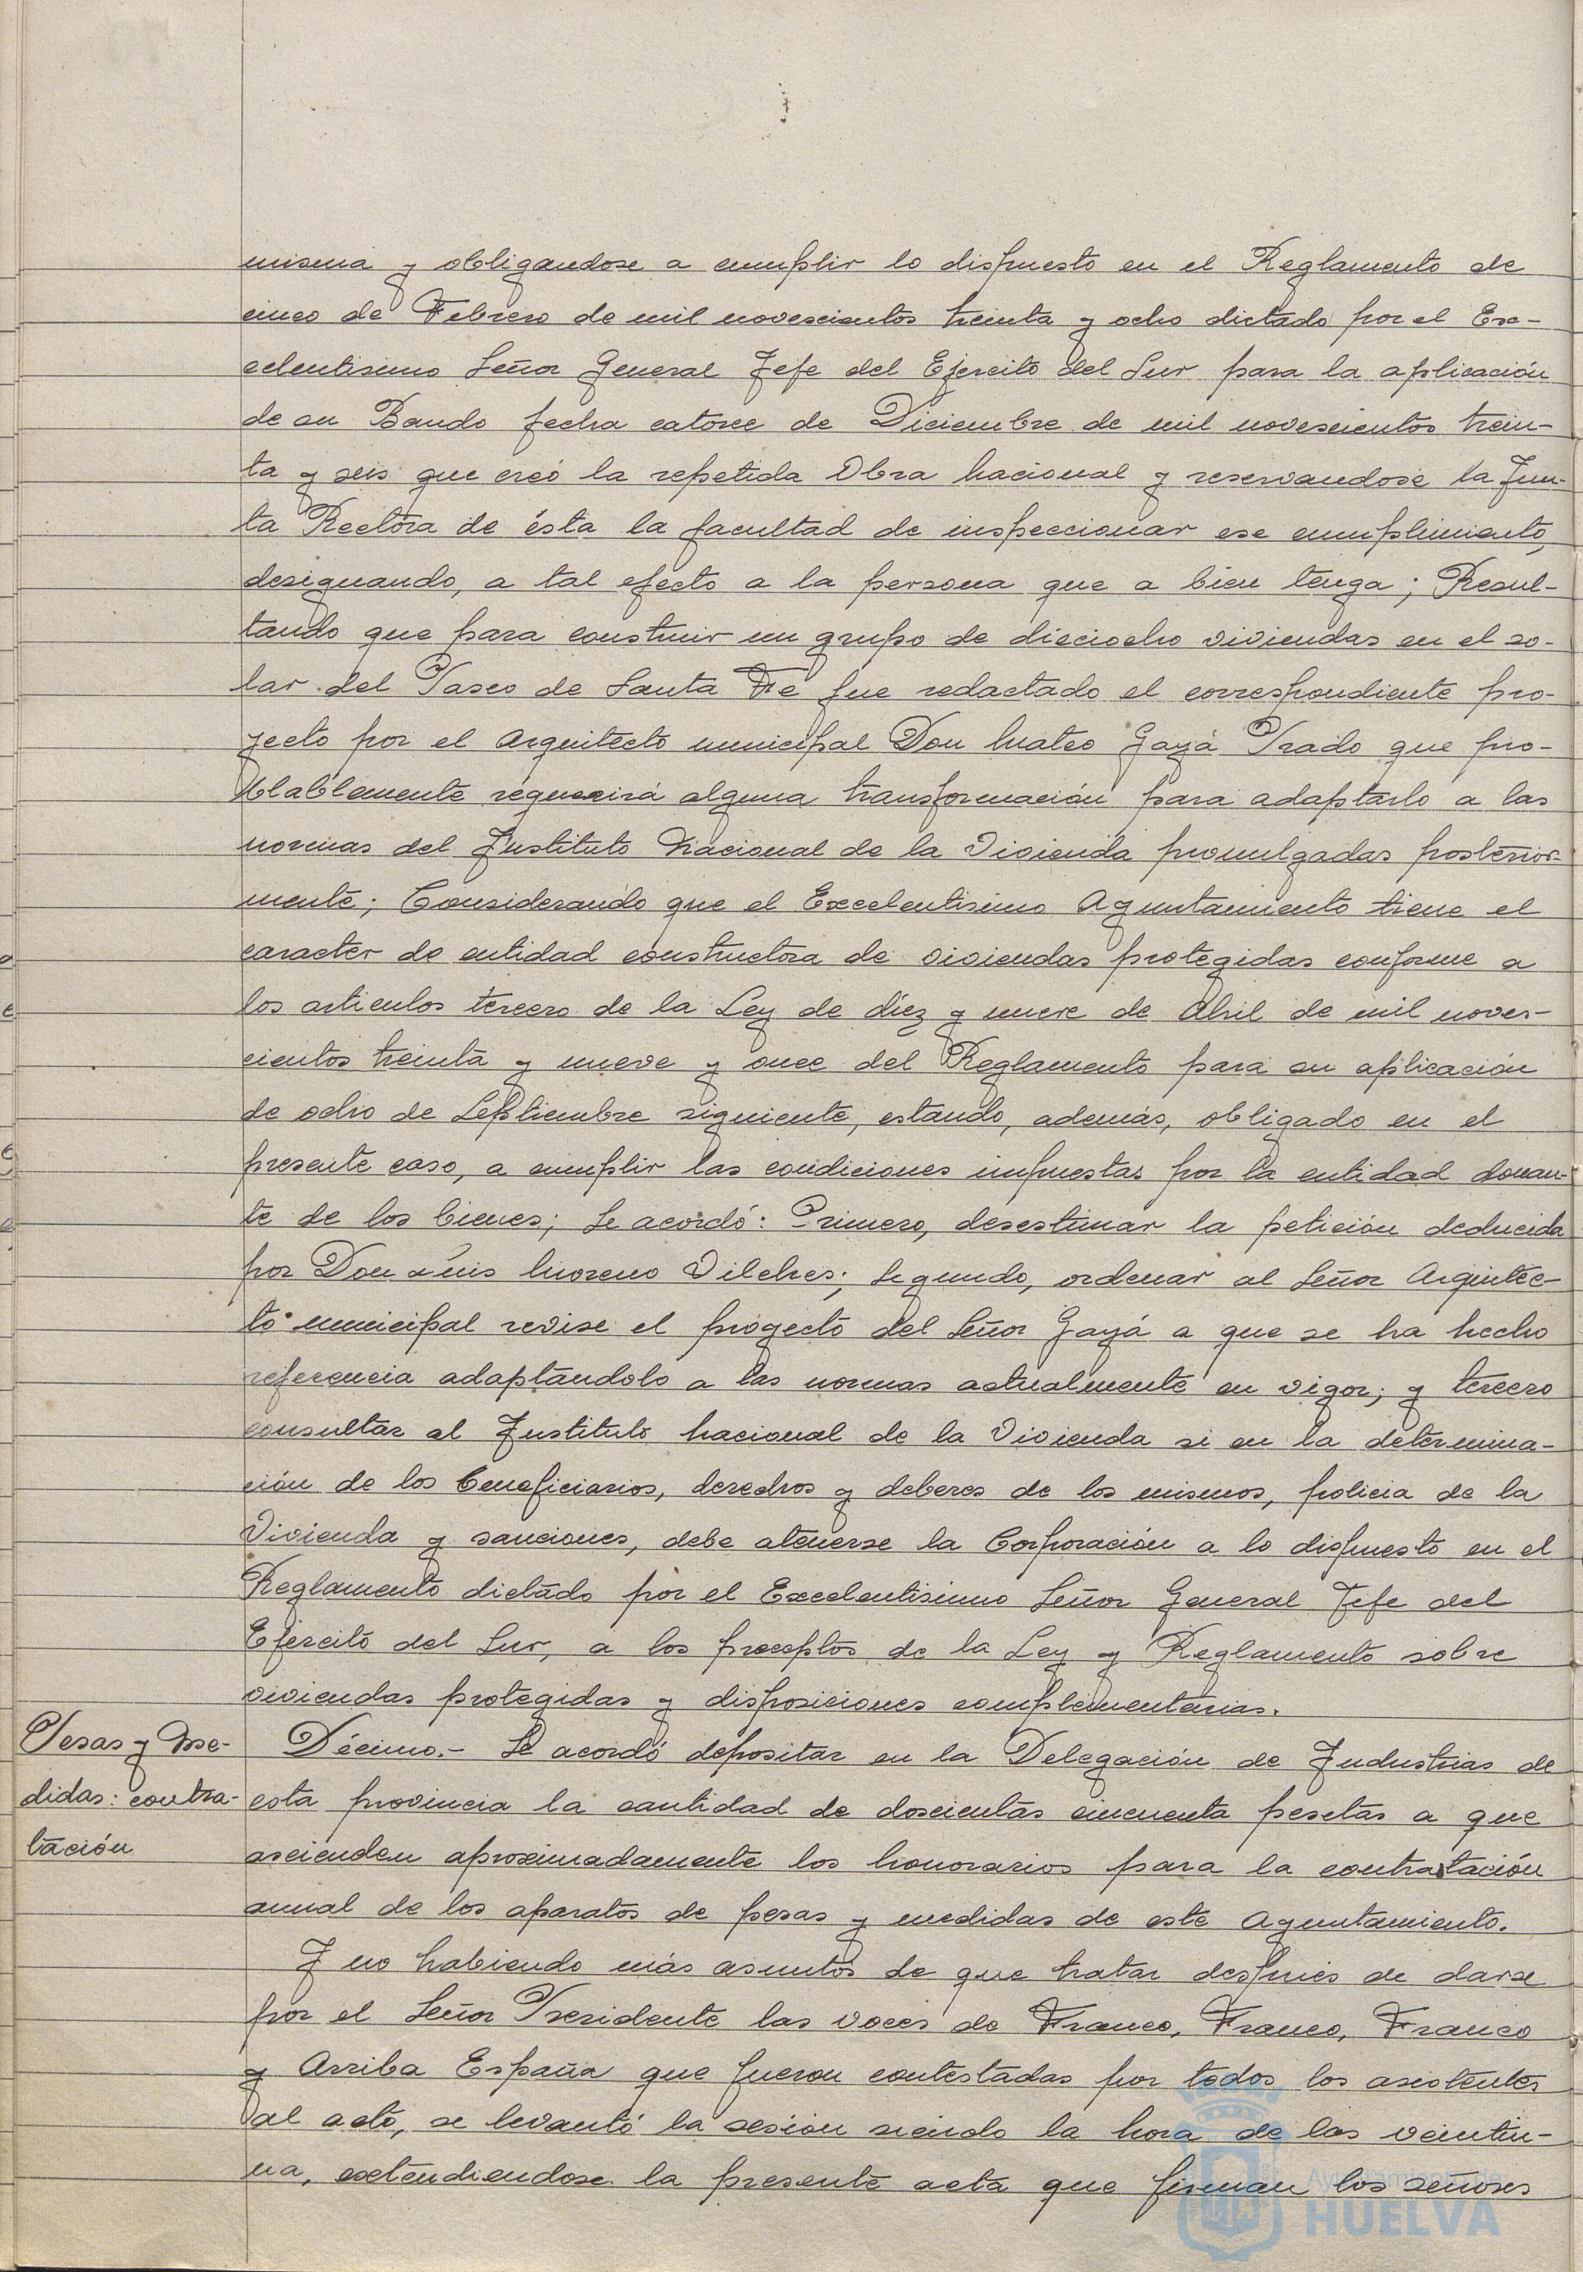 misma y obligandose a cumplir lo dispuesto en el Reglamento de
cinco de Febrero de mil novescientos treinta y ocho dictado por el Exc-
celentisimo Señor General Jefe del Ejercito del Sur para la aplicación
de su Bando fecha catorce de Diciembre de mil novescientos trein-
ta y seis que creó la repetida Obra Nacional y reservandose la Jun-
ta Rectora de ésta la facultad de inspeccionar ese cumplimiento,
designando, a tal efecto a la persona que a bien tenga; Resul-
tando que para construir un grupo de dieciocho viviendas en el so-
lar del Paseo de Santa Fé fue redactado el correspondiente pro-
yecto por el Arquitecto municipal Don Mateo Gayá Prado que pro-
blablemente requerirá alguna transformación para adaptarlo a las
normas del Instituto Nacional de la Vivienda promulgadas posterior-
mente; Considerando que el Excelentisimo Ayuntamiento tiene el
caracter de entidad constructora de viviendas protegidas conforme a
los articulos tercero de la Ley de diez y nueve de Abril de mil noves-
cientos treinta y nueve y once del Reglamento para su aplicación
de ocho de Septiembre siguiente, estando, además, obligado en el
presente caso, a cumplir las condiciones impuestas por la entidad donan-
te de los bienes; Se acordó: Primero, desestimar la petición deducida
por Don Luis Moreno Vilches; Segundo, ordenar al Señor Arquitec-
to municipal revise el proyecto del Señor Gayá a que se ha hecho
referencia adaptándolo a las normas actualmente en vigor; y tercero
consultar al Instituto Nacional de la Vivienda si en la determina-
ción de los beneficiarios, derechos y deberes de los mismos, policia de la
Vivienda y sanciones, debe atenerse la Corporación a lo dispuesto en el
Reglamento dictado por el Excelentisimo Señor General Jefe del
Ejercito del Sur, a los preceptos de la Ley y Reglamento sobre
viviendas protegidas y disposiciones complementarias.
Pesas y Me-
didas: contra-
tación
Décimo.- Se acordó depositar en la Delegación de Industrias de
esta provincia la cantidad de doscientas cincuenta pesetas a que
ascienden aproximadamente los honorarios para la contratación
anual de los aparatos de pesas y medidas de este Ayuntamiento.
Y no habiendo más asuntos de que tratar después de darse
por el Señor Presidente las voces de Franco, Franco, Franco
y Arriba España que fueron contestadas por todos los asistentes
al acto, se levantó la sesión siendo la hora de las veintiu-
na, extendiendose la presente acta que firman los señores
Ayuntamiento de
HUELVA